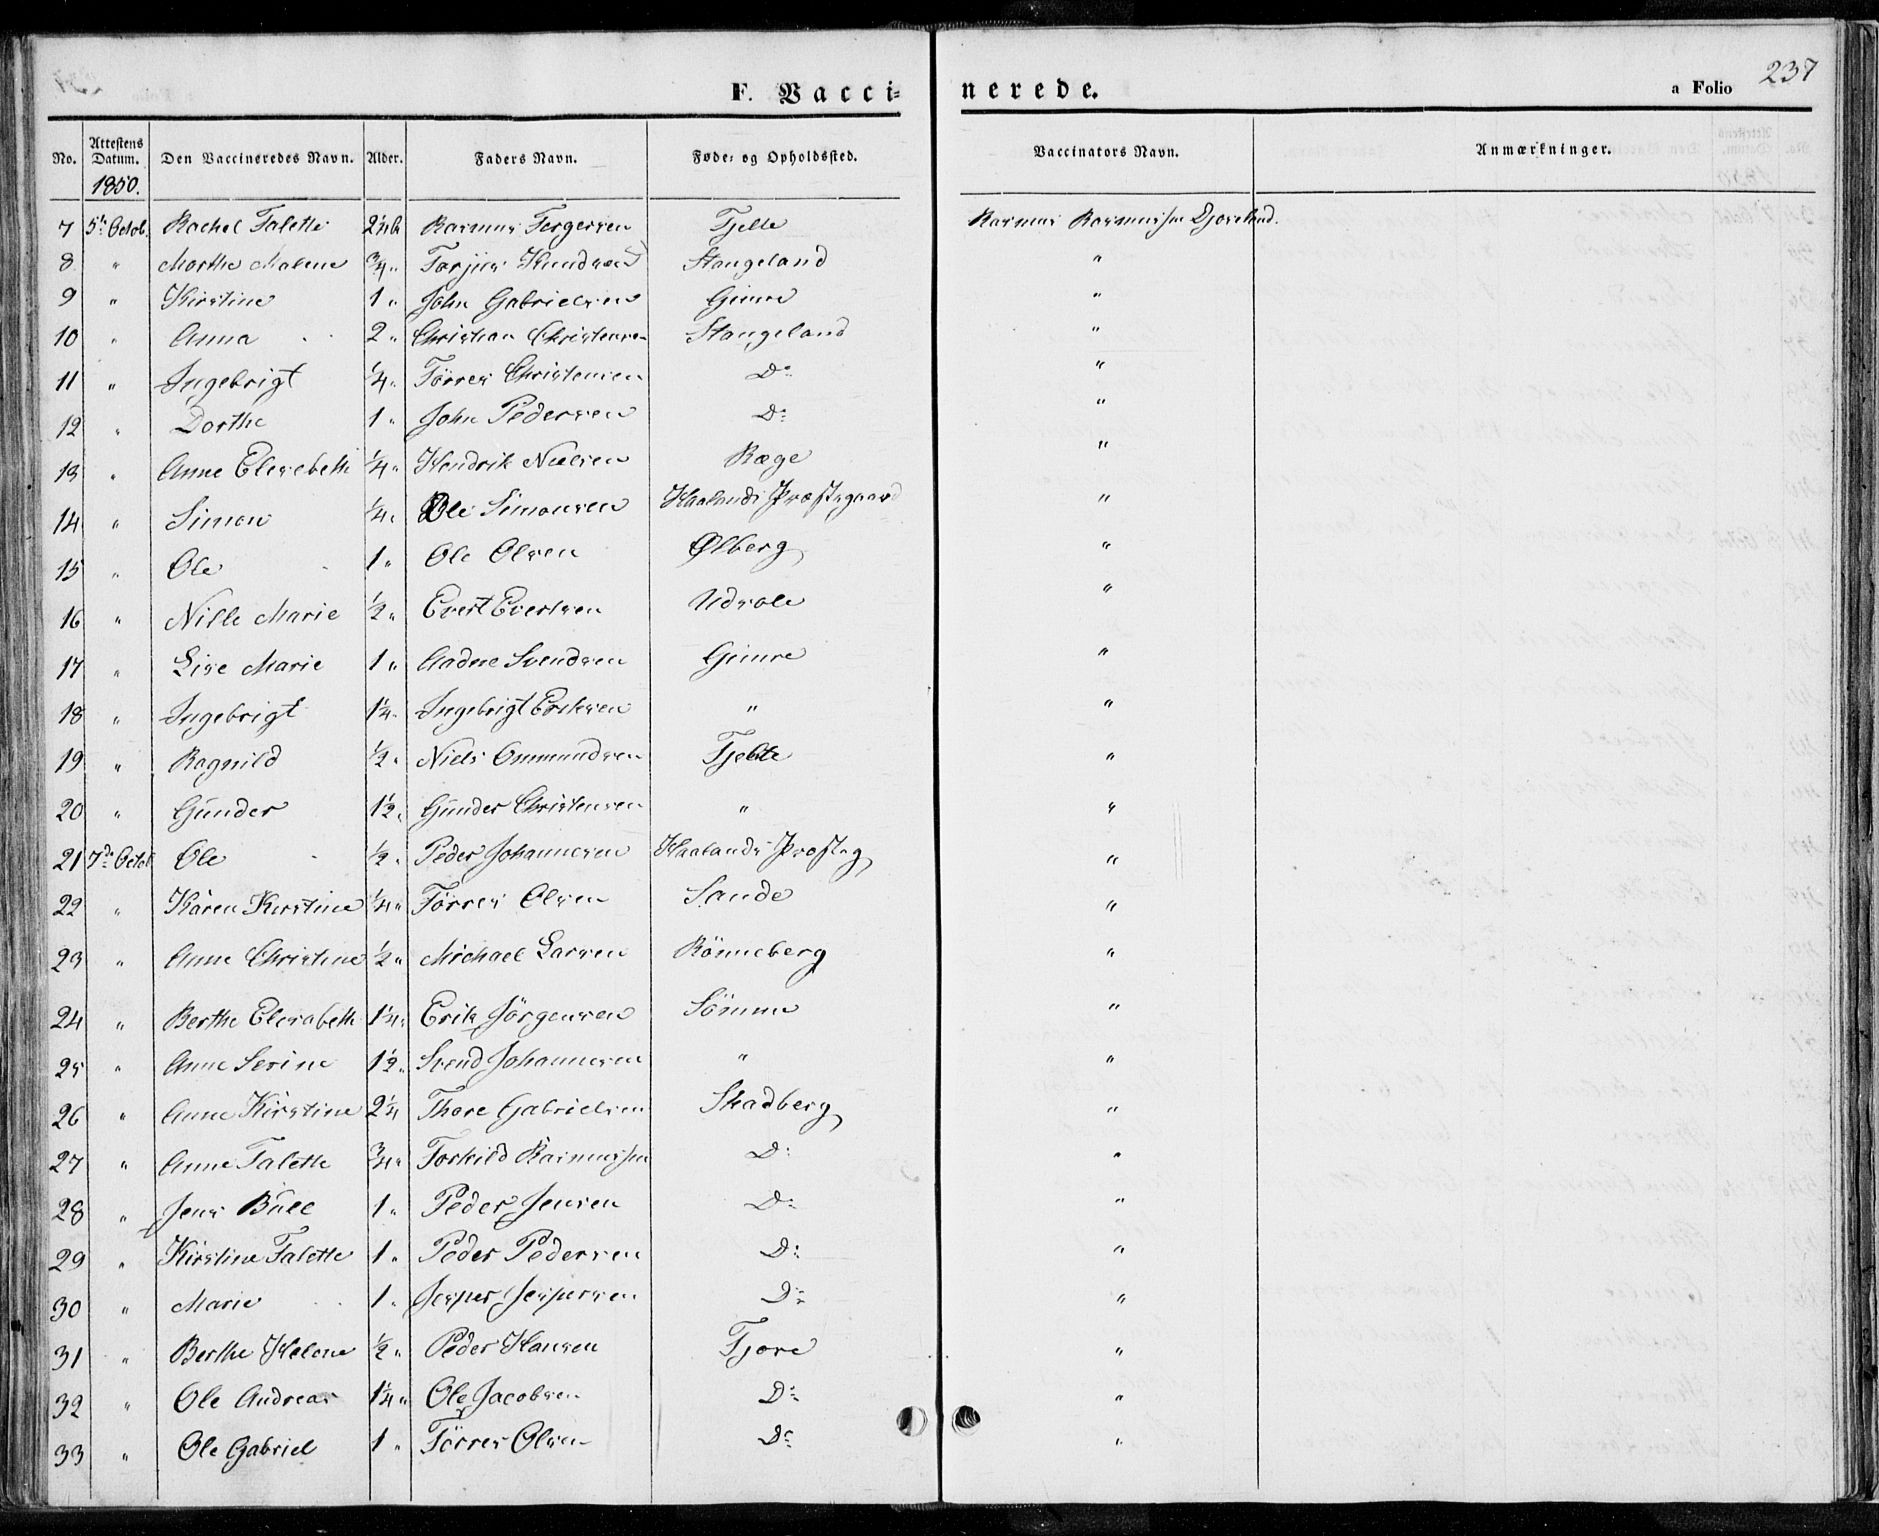 237
F. Vacci=nerede. a Folio
No. | Attestens Datum. | Den Vaccineredes Navn. | Alder. | Faders Navn. | Føde= og Opholdssted. | Vaccinators Navn. | Anmærkninger.
1850.
7 | 5te Octob. | Rachel Talette | 2 1/2 | Rasmus Tergersen | Tjelte | Rasmus Rasmussen
8 | " | Marthe Malene | 3/4 " | Tarjus Knudsen | Stangeland | "
9 | " | Kirstine | 1 " | John Gabrielsen | Gimre | "
10 | " | Anna | 2 " | Christian Christensen | Stangeland | "
11 | " | Ingebrigt | 1/4 " | Törres Christensen | Do | "
12 | " | Dorthe | 1 " | John Pedersen | Do | "
13 | " | Anne Elesebeth | 1/4 " | Hendrik Nielsen | Ræge | "
14 | " | Simon | 1/4 " | Ole Simonsen | Haalands Præstegaard | "
15 | " | Ole | 1 " | Ole Olsen | Ølberg | "
16 | " | Nille Marie | 1/2 " | Evert Evertsen | Udsole | "
17 | " | Lise Marie | 1 " | Aadne Svendsen | Gimre | "
18 | " | Ingebrigt | 1 1/4 " | Ingebrigt Eriksen | " | "
19 | " | Ragnild | 1/2 " | Niels Ommundsen | Tjelte | "
20 | " | Gunder | 1 1/2 " | Gunder Christensen | " | "
21 | 7de Octob | Ole | 1/2 " | Peder Johannesen | Haalands Præsteg | "
22 | " | Karen Kirstine | 1/4 " | Törres Olsen | Sande | "
23 | " | Anne Christine | 1/2 " | Michael Larsen | Rönneberg | "
24 | " | Berthe Elesabeth | 1 1/4 " | Erik Jörgensen | Sömme | "
25 | " | Anne Serine | 1 1/2 " | Svend Johannesen | " | "
26 | " | Anne Kirstine | 2 1/4 | Thore Gabrielsen | Skadberg | "
27 | " | Anne Talette | 3/4 " | Torkild Rasmussen | Do | "
28 | " | Jens Bull | 1 " | Peder Jensen | Do | "
29 | " | Kirstine Talette | 1 " | Peder Pedersen | Do | "
30 | " | Marie | 1 " | Jesper Jespersen | Do | "
31 | " | Berthe Helene | 1/2 " | Peder Hansen | Tjore | "
32 | " | Ole Andreas | 1 1/4 " | Ole Jacobsen | Do | "
33 | " | Ole Gabriel | 1 " | Törres Olsen | Do | "